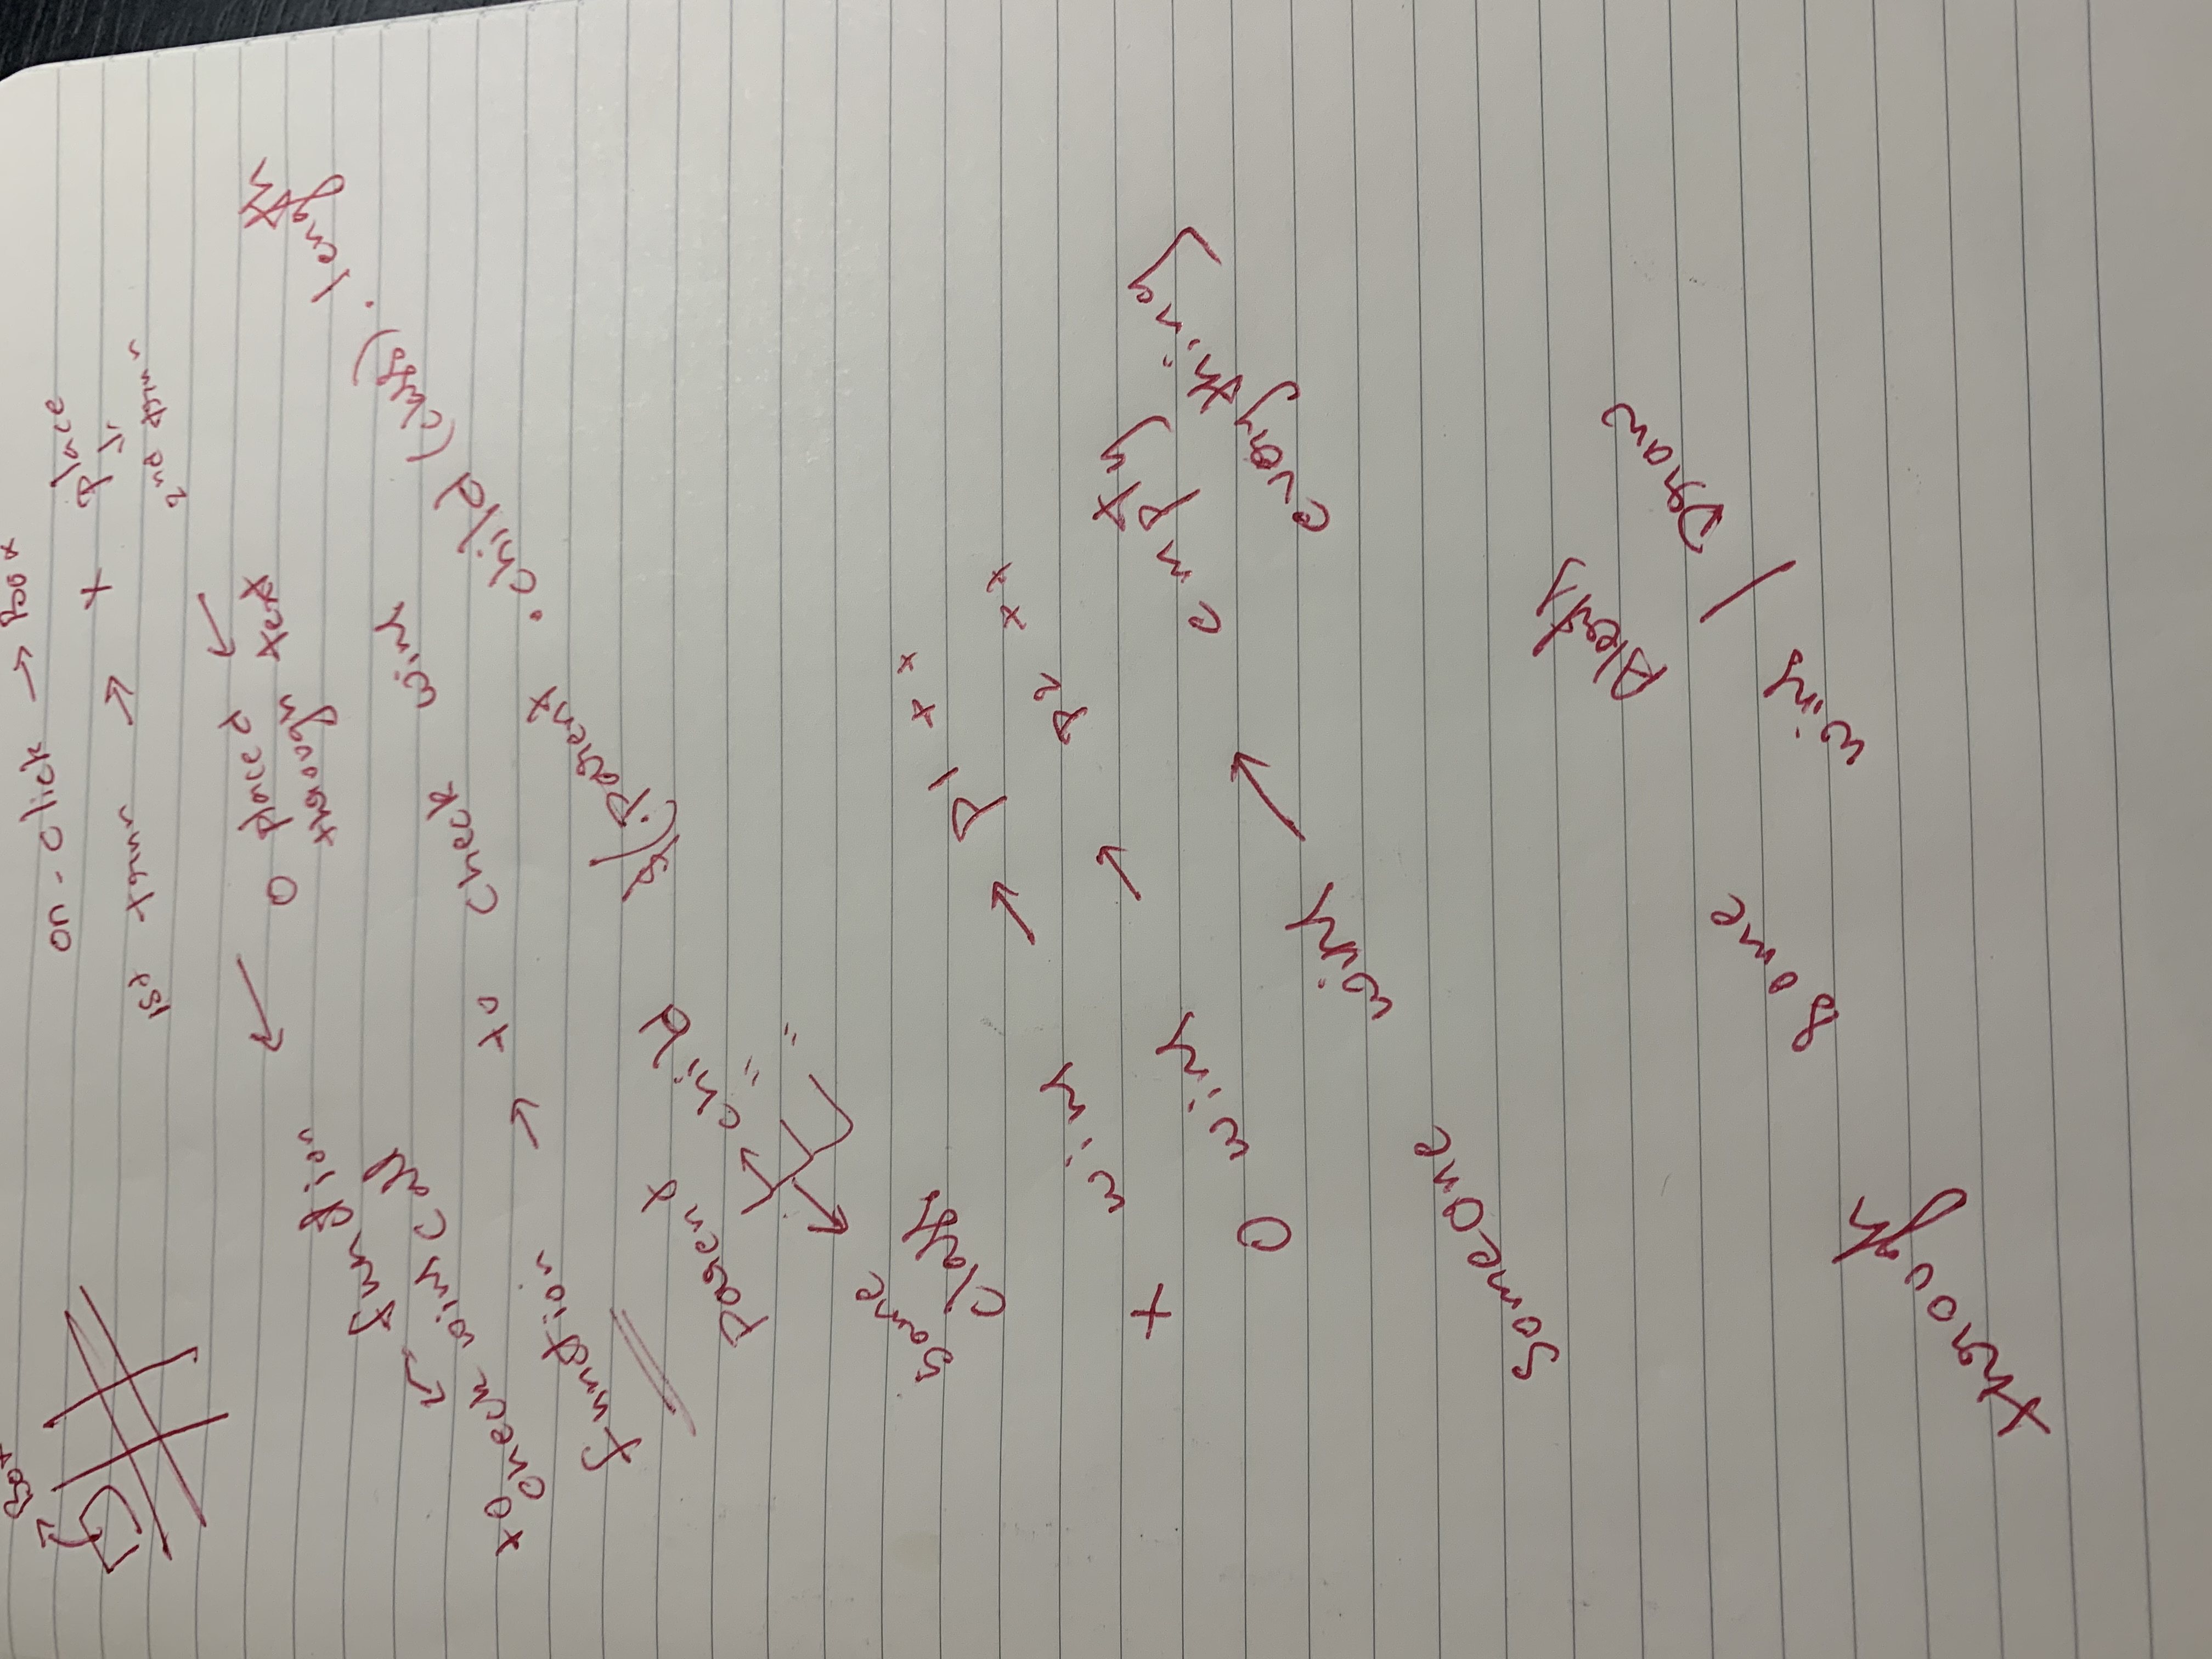 Box
on-click → Box
1st turn → X place
↓
2nd turn
←
O placed
through text
←
function
← call
to check wins
function → to check wins
Parent
→ child
"
"
same
class
$(.parent .child (class).length
X wins → P1 ++
O wins → P2 ++
Someone wins → empty
everything
through some Alerts
wins / Draw